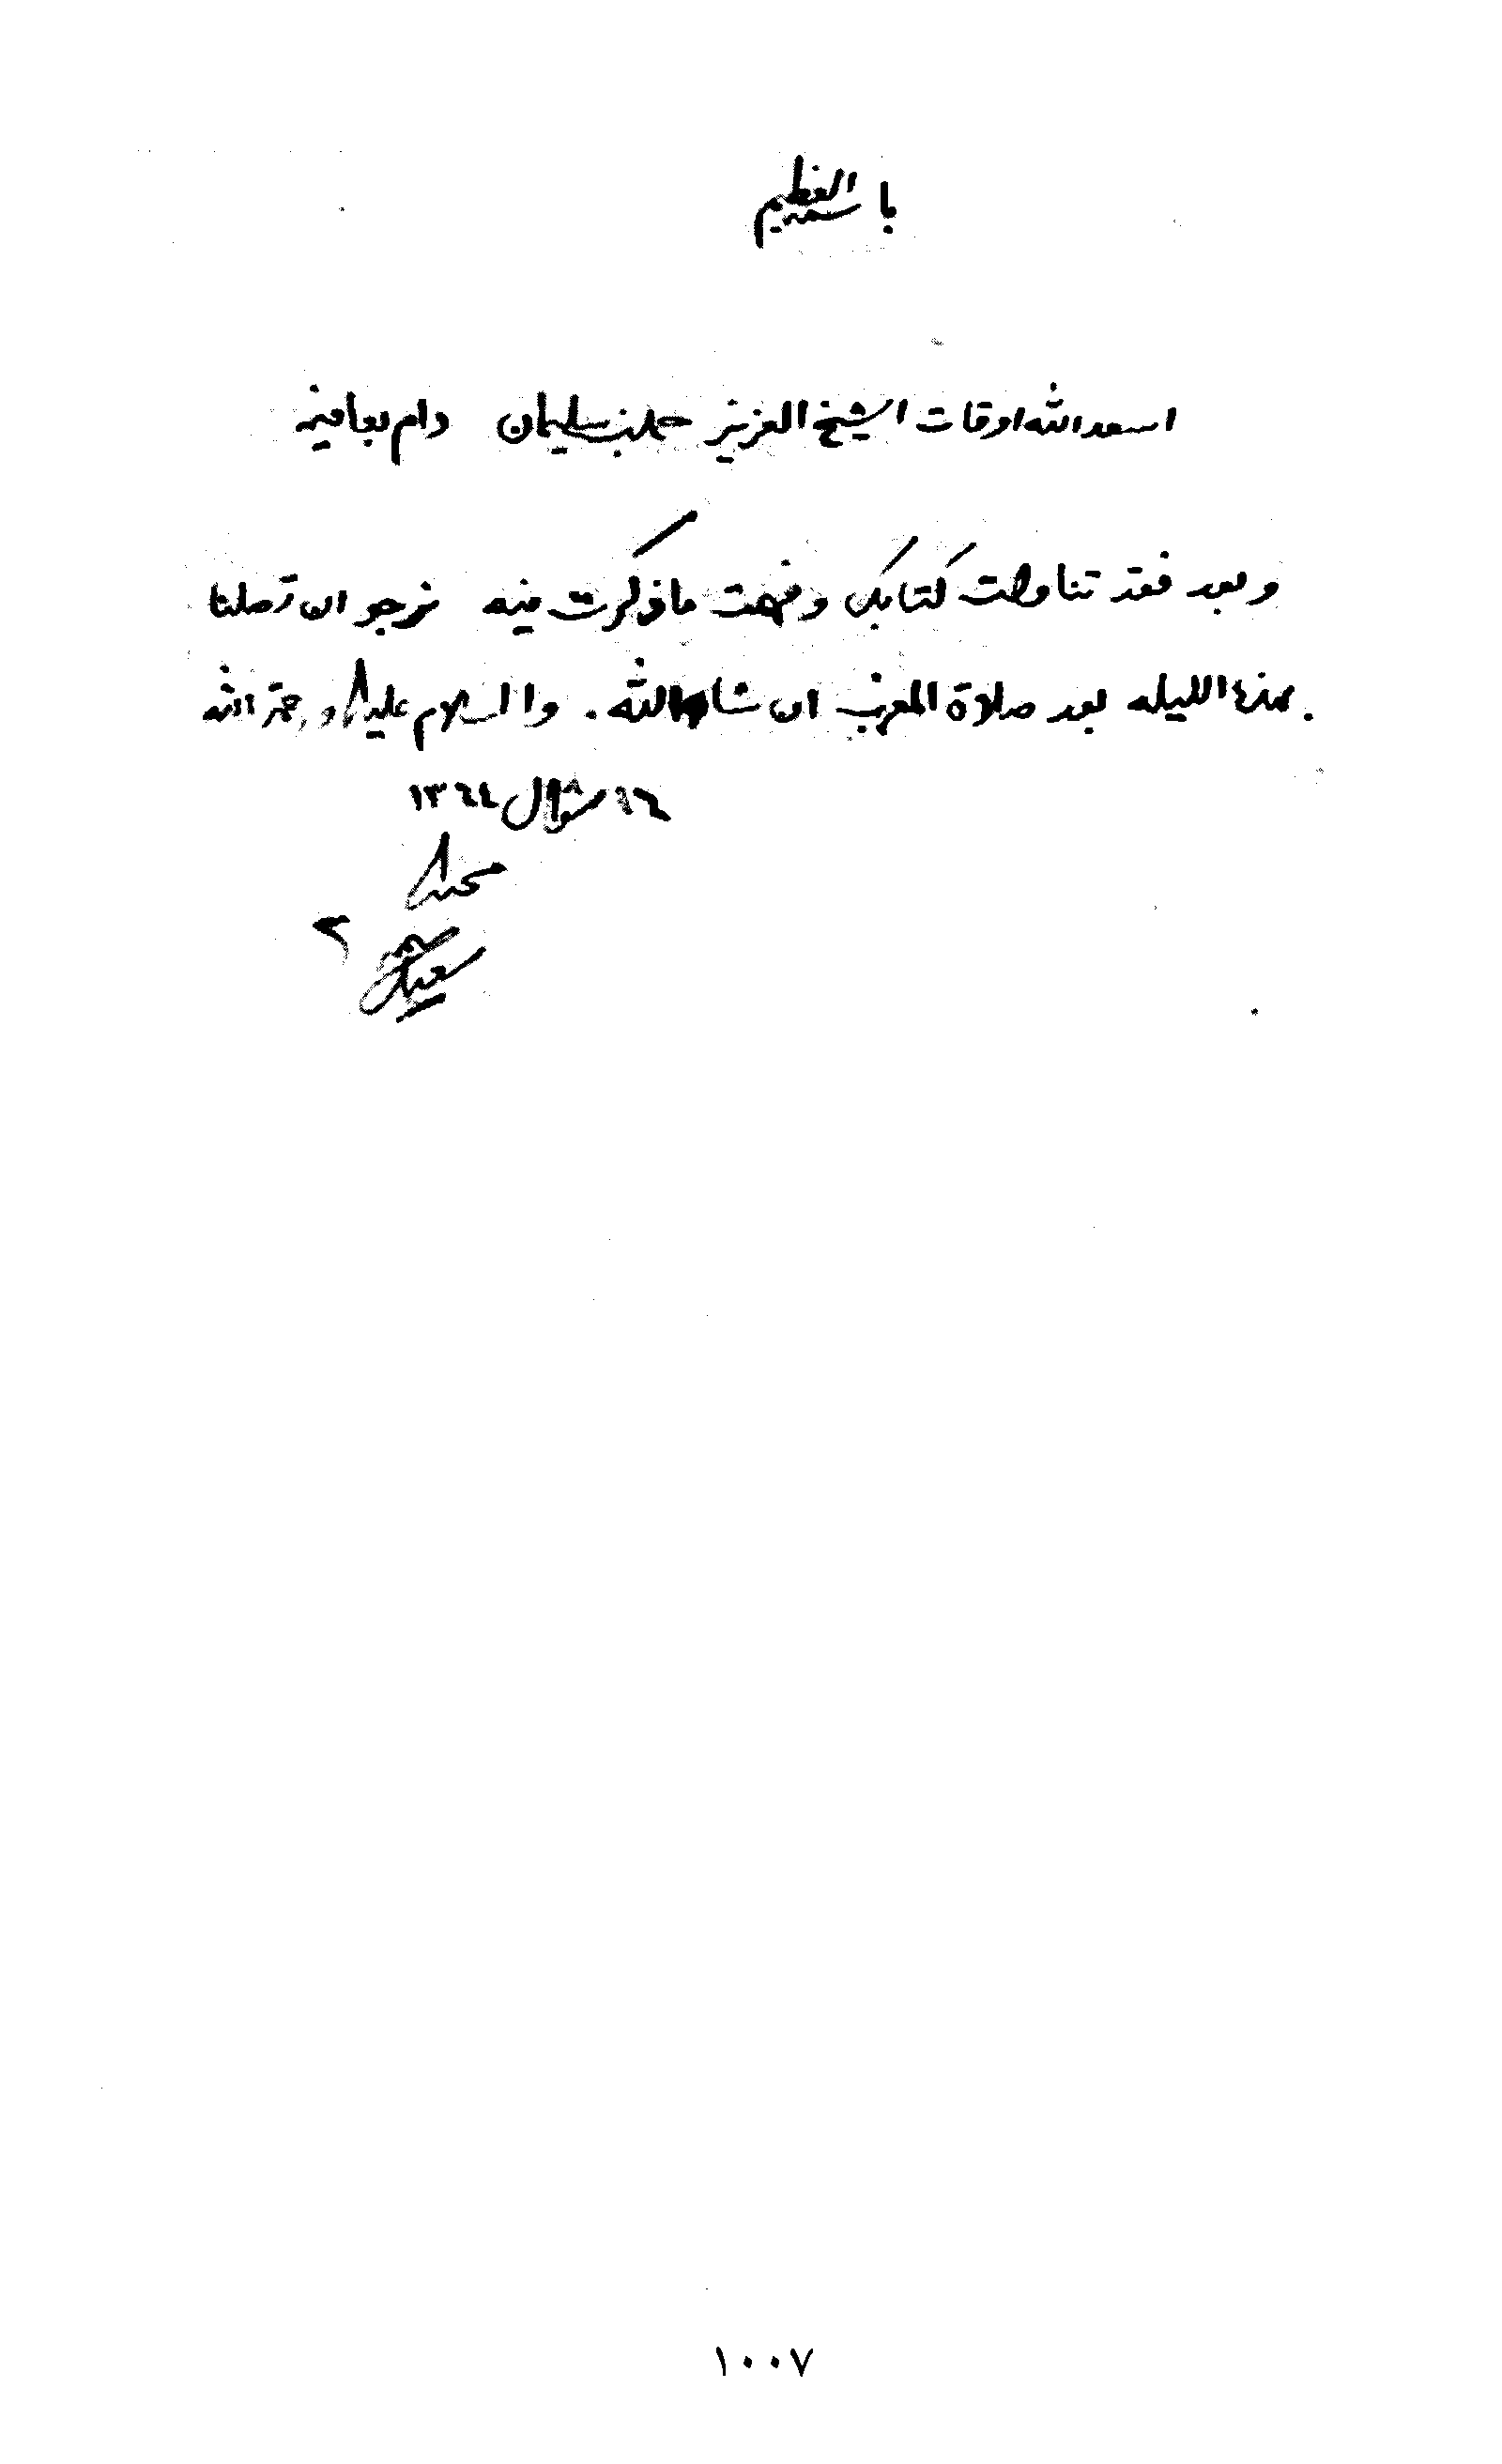 باسمه العظيم
اسعد الله اوقات الشيخ العزيز حمد بن سليمان دام بعافيه
وبعد فقد تناولت كتابك وفهمت ما ذكرت فيه نرجو ان تصلنا
بهذه الليله بعد صلاة المغرب ان شاء الله . والسلام عليك ورحمة الله
١٦ شوال ١٣٦٤
محبك
سعيد
١٠٠٧